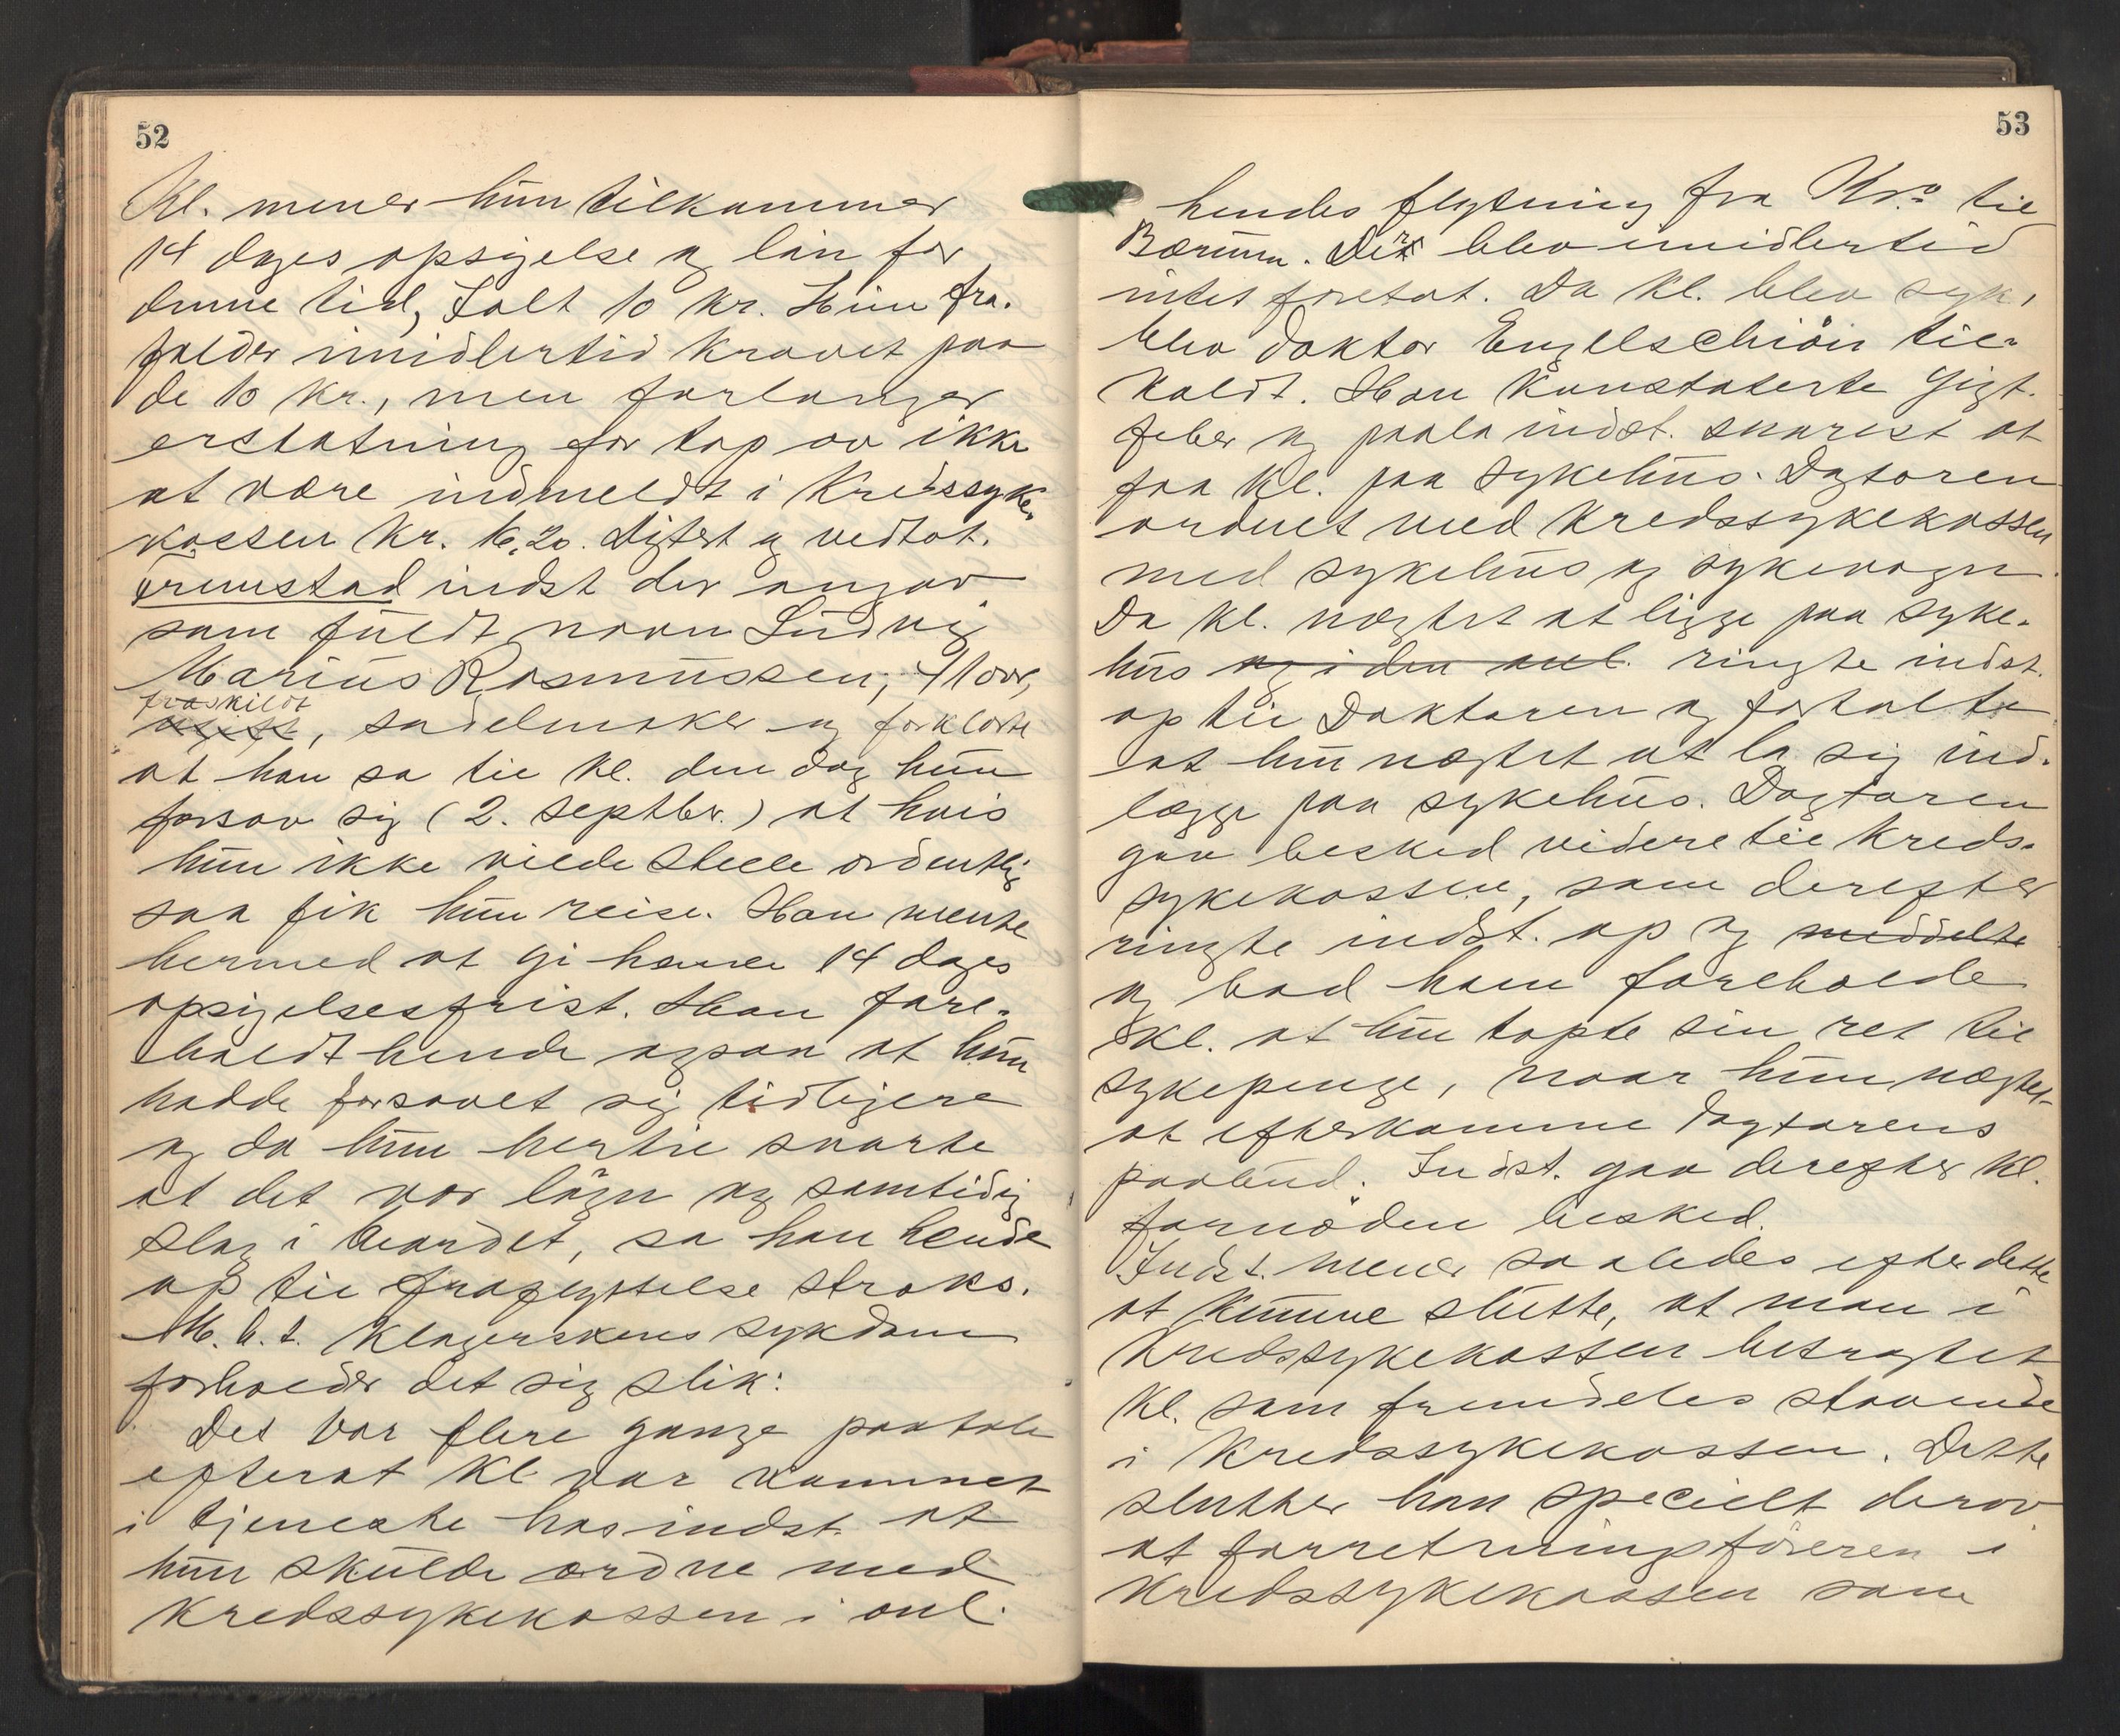 52
Kl. mener hun tilkommer
14 dages opsigelse og løn for
denne tid, Ialt 10 kr. Hun fra-
falder imidlertid kravet paa
de 10 kr., men forlanger
erstatning for tap av ikke
at være indmeldt i Kredssyke-
kassen kr. 16,20. Digtert og vedtat.
indst der angav
som fuldt navn Ludvig
Marius Rasmussen, 41 aar,
fraskilt
ugift, sadelmaker og forklarte
at han sa til kl. den dag hun
forsov sig (2. septbr.) at hvis
hun ikke vilde stelle ordentlig
saa fik hun reise. Han mente
hermed at gi henne 14 dages
opsigelsesfrist. Han fore-
holdt hende ogsaa at hun
hadde forsovet sig tidligere
og da hun hertil svarte
at det var løgn og samtidig
slog i bordet, sa han hende
op til fraflyttelse straks.
M.h.t. Klagerskens sykdom
forholder det sig slik:
Det var flere gange paatale
efterat Kl. var kommet
i tjeneste hos indst. at
hun skulde ordne med
Kredssykekassen i anl.
53
hendes flytning fra Kr.a til
Bærum. Der blev imidlertid
intet foretat. Da kl. blev syk,
blev doktor Engelschiøn til-
kaldt. Han konstaterte gigt-
feber og paala indst. snarest at
faa kl. paa sykehus. Dogtoren
ordnet med kredssykekassen
med sykehus og sykevogn.
Da kl. nægtet at ligge paa syke-
hus og i den anl. ringte indst.
op til Doktoren og fortalte
at hun nægtet at la sig ind-
lægge paa sykehus. Dogtoren
gav besked videre til Kreds-
sykekassen, som derefter
ringte indst. op og meddelte
og bad ham foreholde
Kl. at hun tapte sin ret til
sykepenge, naar hun nægtet
at efterkomme dogtorens
paabud. Indst. gav derefter kl.
fornøden besked.
Indst. mener saaledes efter dette
at kunne slutte, at man i
Kredssykekassen betragtet
kl. som fremdeles staaende
i Kredssykekassen. Dette
slutter han specielt derav
at forretningsføreren i
Kredssykekassen som